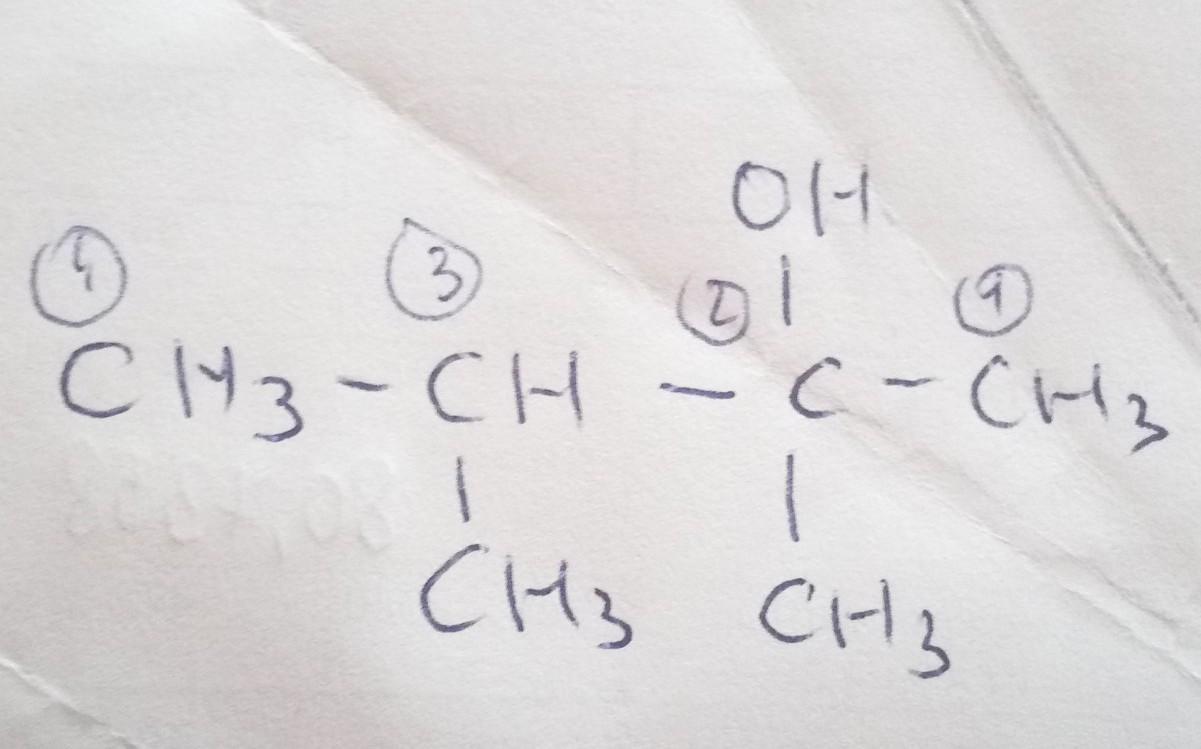 OH
④ ③ ② ①
CH3 - CH - C - CH3
CH3 CH3